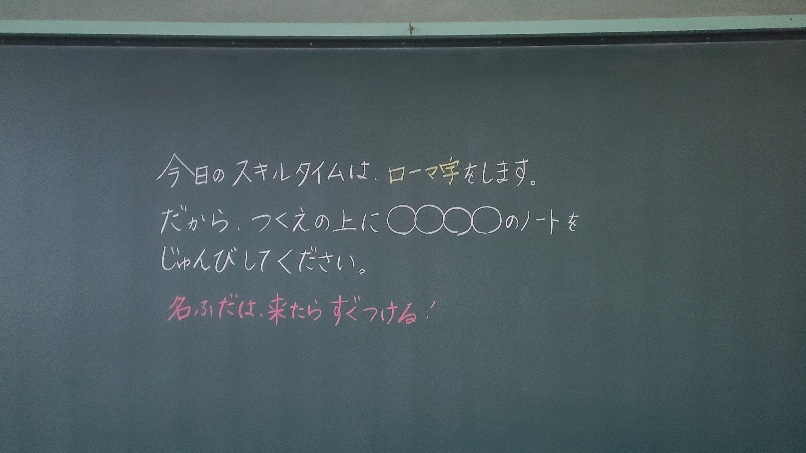 今日のスキルタイムは、ローマ字をします。
だから、つくえの上に○○○○のノートを
じゅんびしてください。
名ふだは、来たらすぐつける!